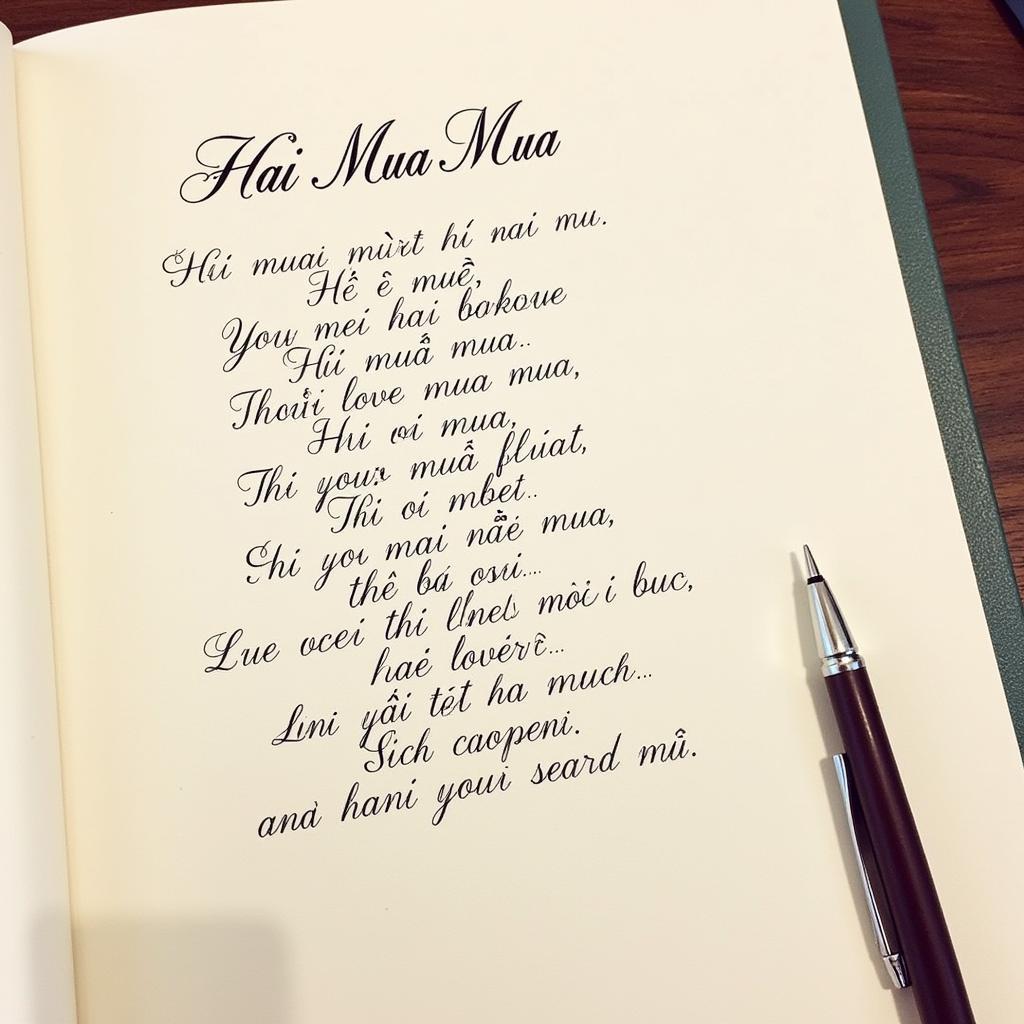 Hai Mua Mua
Hui muai mùrt hí nai mu.
Hế ẽ muề,
You mei hai bakoue
Húi muẫ mua..
love mua mua,
Hui oi mua,
Thi your muẫ fluiat,
Thi oi mbet..
yoı mai mua,
thê bá osıi....
Lue ocei thi mòi i buc,
haé
yẫi tét ha much...
Sich caopeni.
and hani youi seard mũi.